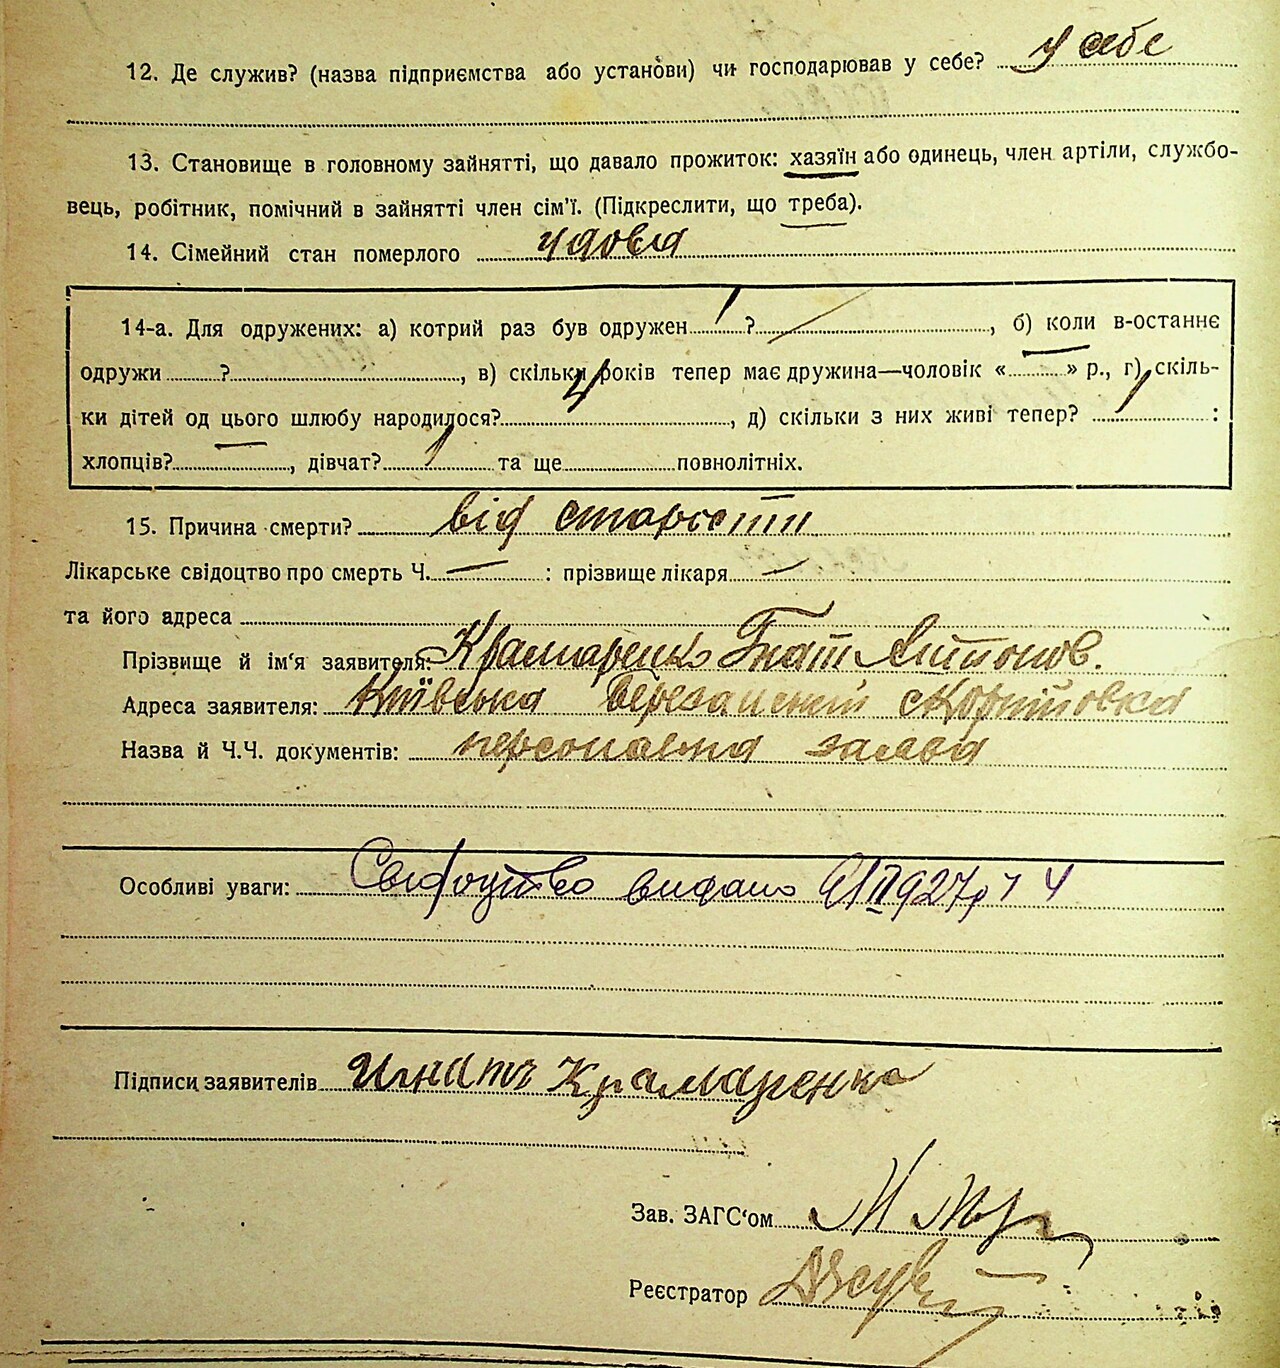 12. Де служив? (назва підприємства або установи) чи господарював у себе? у себе
13. Становище в головному зайнятті, що давало прожиток: хазяїн або одинець, член артіли, службо-
вець, робітник, помічний в зайнятті член сім'ї. (Підкреслити, що треба).
14. Сімейний стан померлого удова
14-а. Для одружених: а) котрий раз був одружен 1 ?, б) коли в-останнє
одружи ?, в) скільки років тепер має дружина—чоловік « — » р., г) скіль-
ки дітей од цього шлюбу народилося? 4, д) скільки з них живі тепер? 1 :
хлопців? —, дівчат? 1 та ще повнолітніх.
15. Причина смерти? від старости
Лікарське свідоцтво про смерть Ч. — : прізвище лікаря —
та його адреса
Прізвище й ім'я заявителя: Крамаренко Гнат Антонов.
Адреса заявителя: Київська Березанский
Назва й Ч.Ч. документів: персональна заява
Особливі уваги: Свідоцтво видано 9/II 927р 4
Підписи заявителів Игнатъ Крамаренко
Зав. ЗАГС'ом
Реєстратор